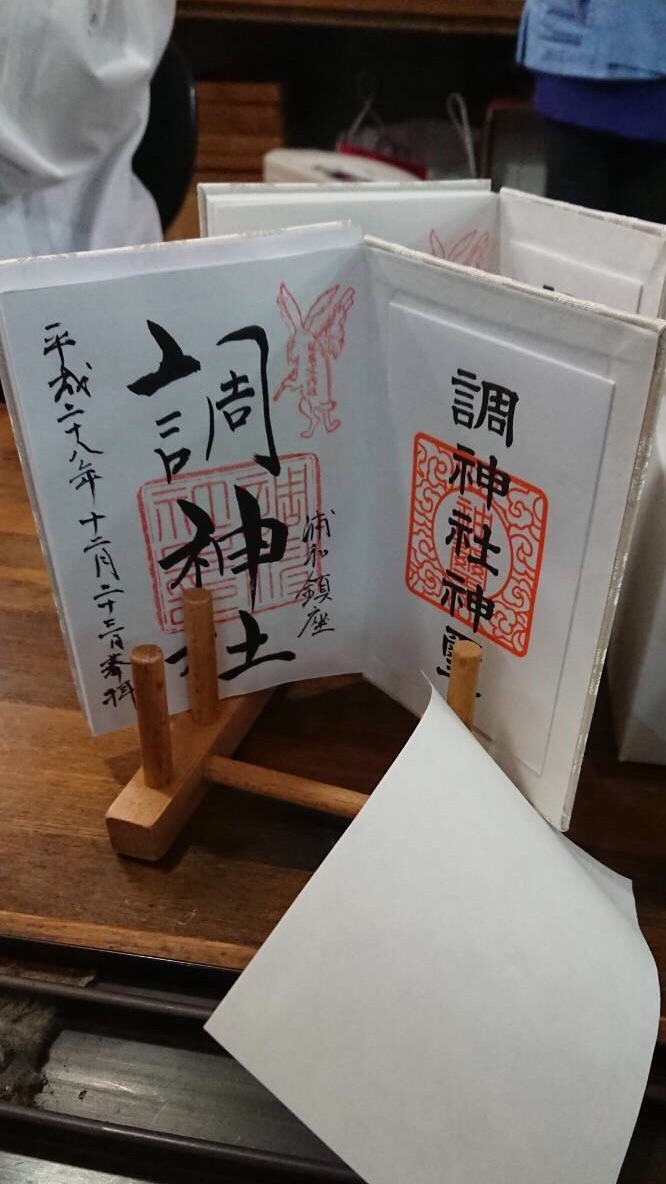 調神社神璽
浦和鎮座
調神社
平成二十八年十二月二十三日奉拝